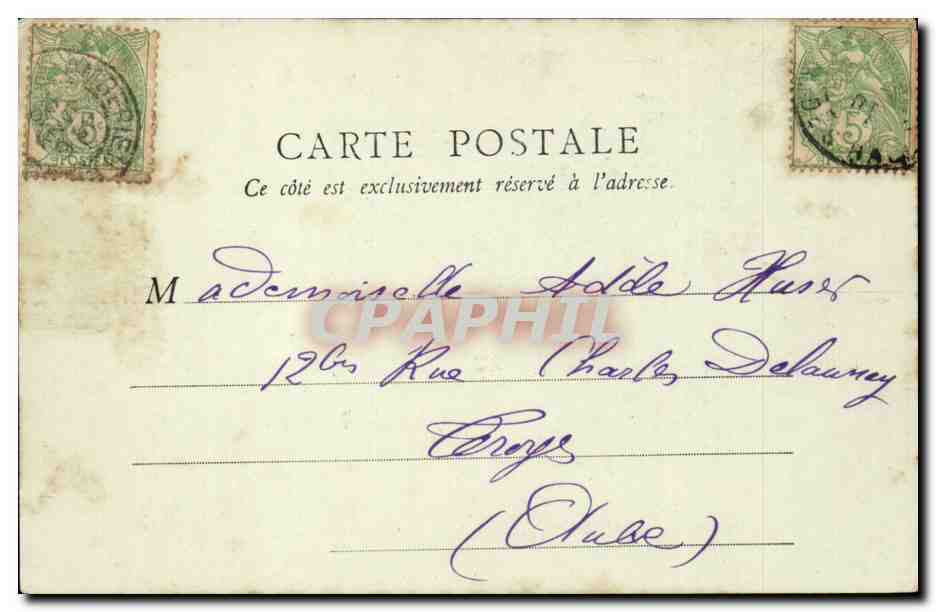 CARTE POSTALE
Ce côté est exclusivement réservé à l'adresse.
Mademoiselle Adèle Huser
CPAPHIL
12bis Rue Charles Delaunay
Troyes
(Aube)
5
5